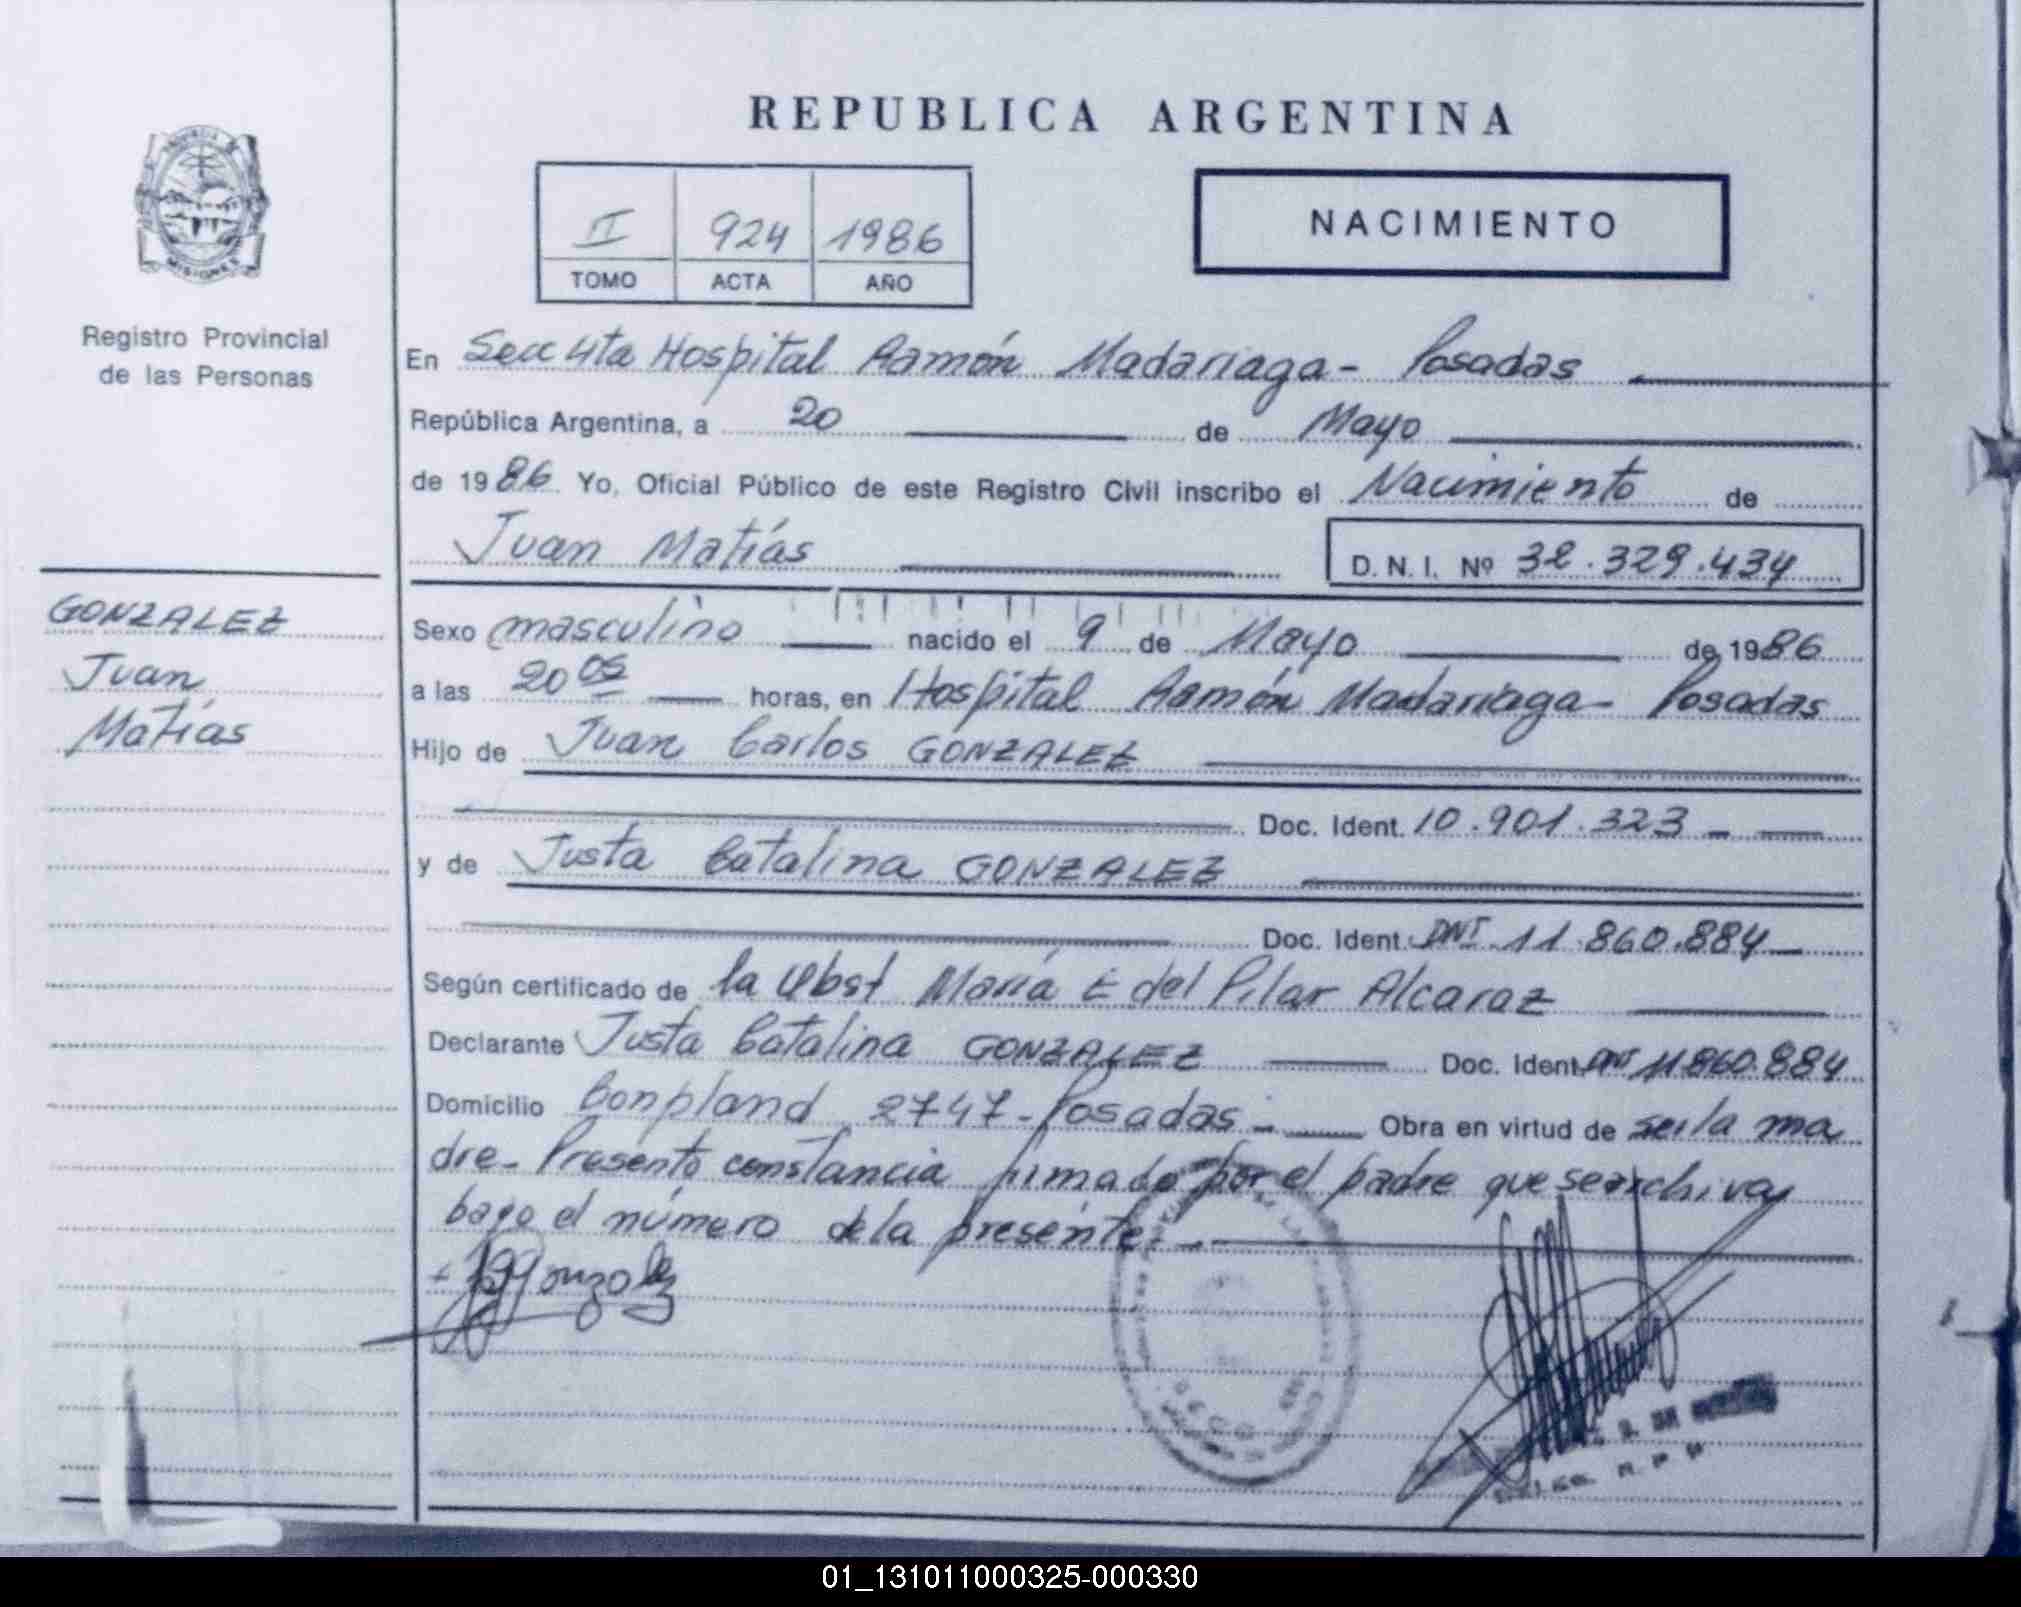 REPUBLICA ARGENTINA
II 924 1986
TOMO ACTA AÑO
NACIMIENTO
MISIONES
Registro Provincial
de las Personas
GONZALEZ
Juan
Matías
En Secc 4ta Hospital Ramón Madariaga - Posadas
República Argentina, a 20 de Mayo
de 1986 Yo, Oficial Público de este Registro Civil inscribo el Nacimiento de
Juan Matías D.N.I. Nº 32.329.434
Sexo masculino nacido el 9 de Mayo de 1986
a las 20 05 horas, en Hospital Ramón Madariaga - Posadas
Hijo de Juan Carlos GONZALEZ
Doc. Ident. 10.901.323
y de Justa Catalina GONZALEZ
Doc. Ident. DNI 11.860.884
Según certificado de la Obst María E del Pilar Alcaraz
Declarante Justa Catalina GONZALEZ Doc. Ident. DNI 11.860.884
Domicilio Bonpland 2747 - Posadas.- Obra en virtud de ser la ma
dre - Presento constancia firmado por el padre que se archiva
bajo el número de la presente.-
Gonzalez
01_131011000325-000330